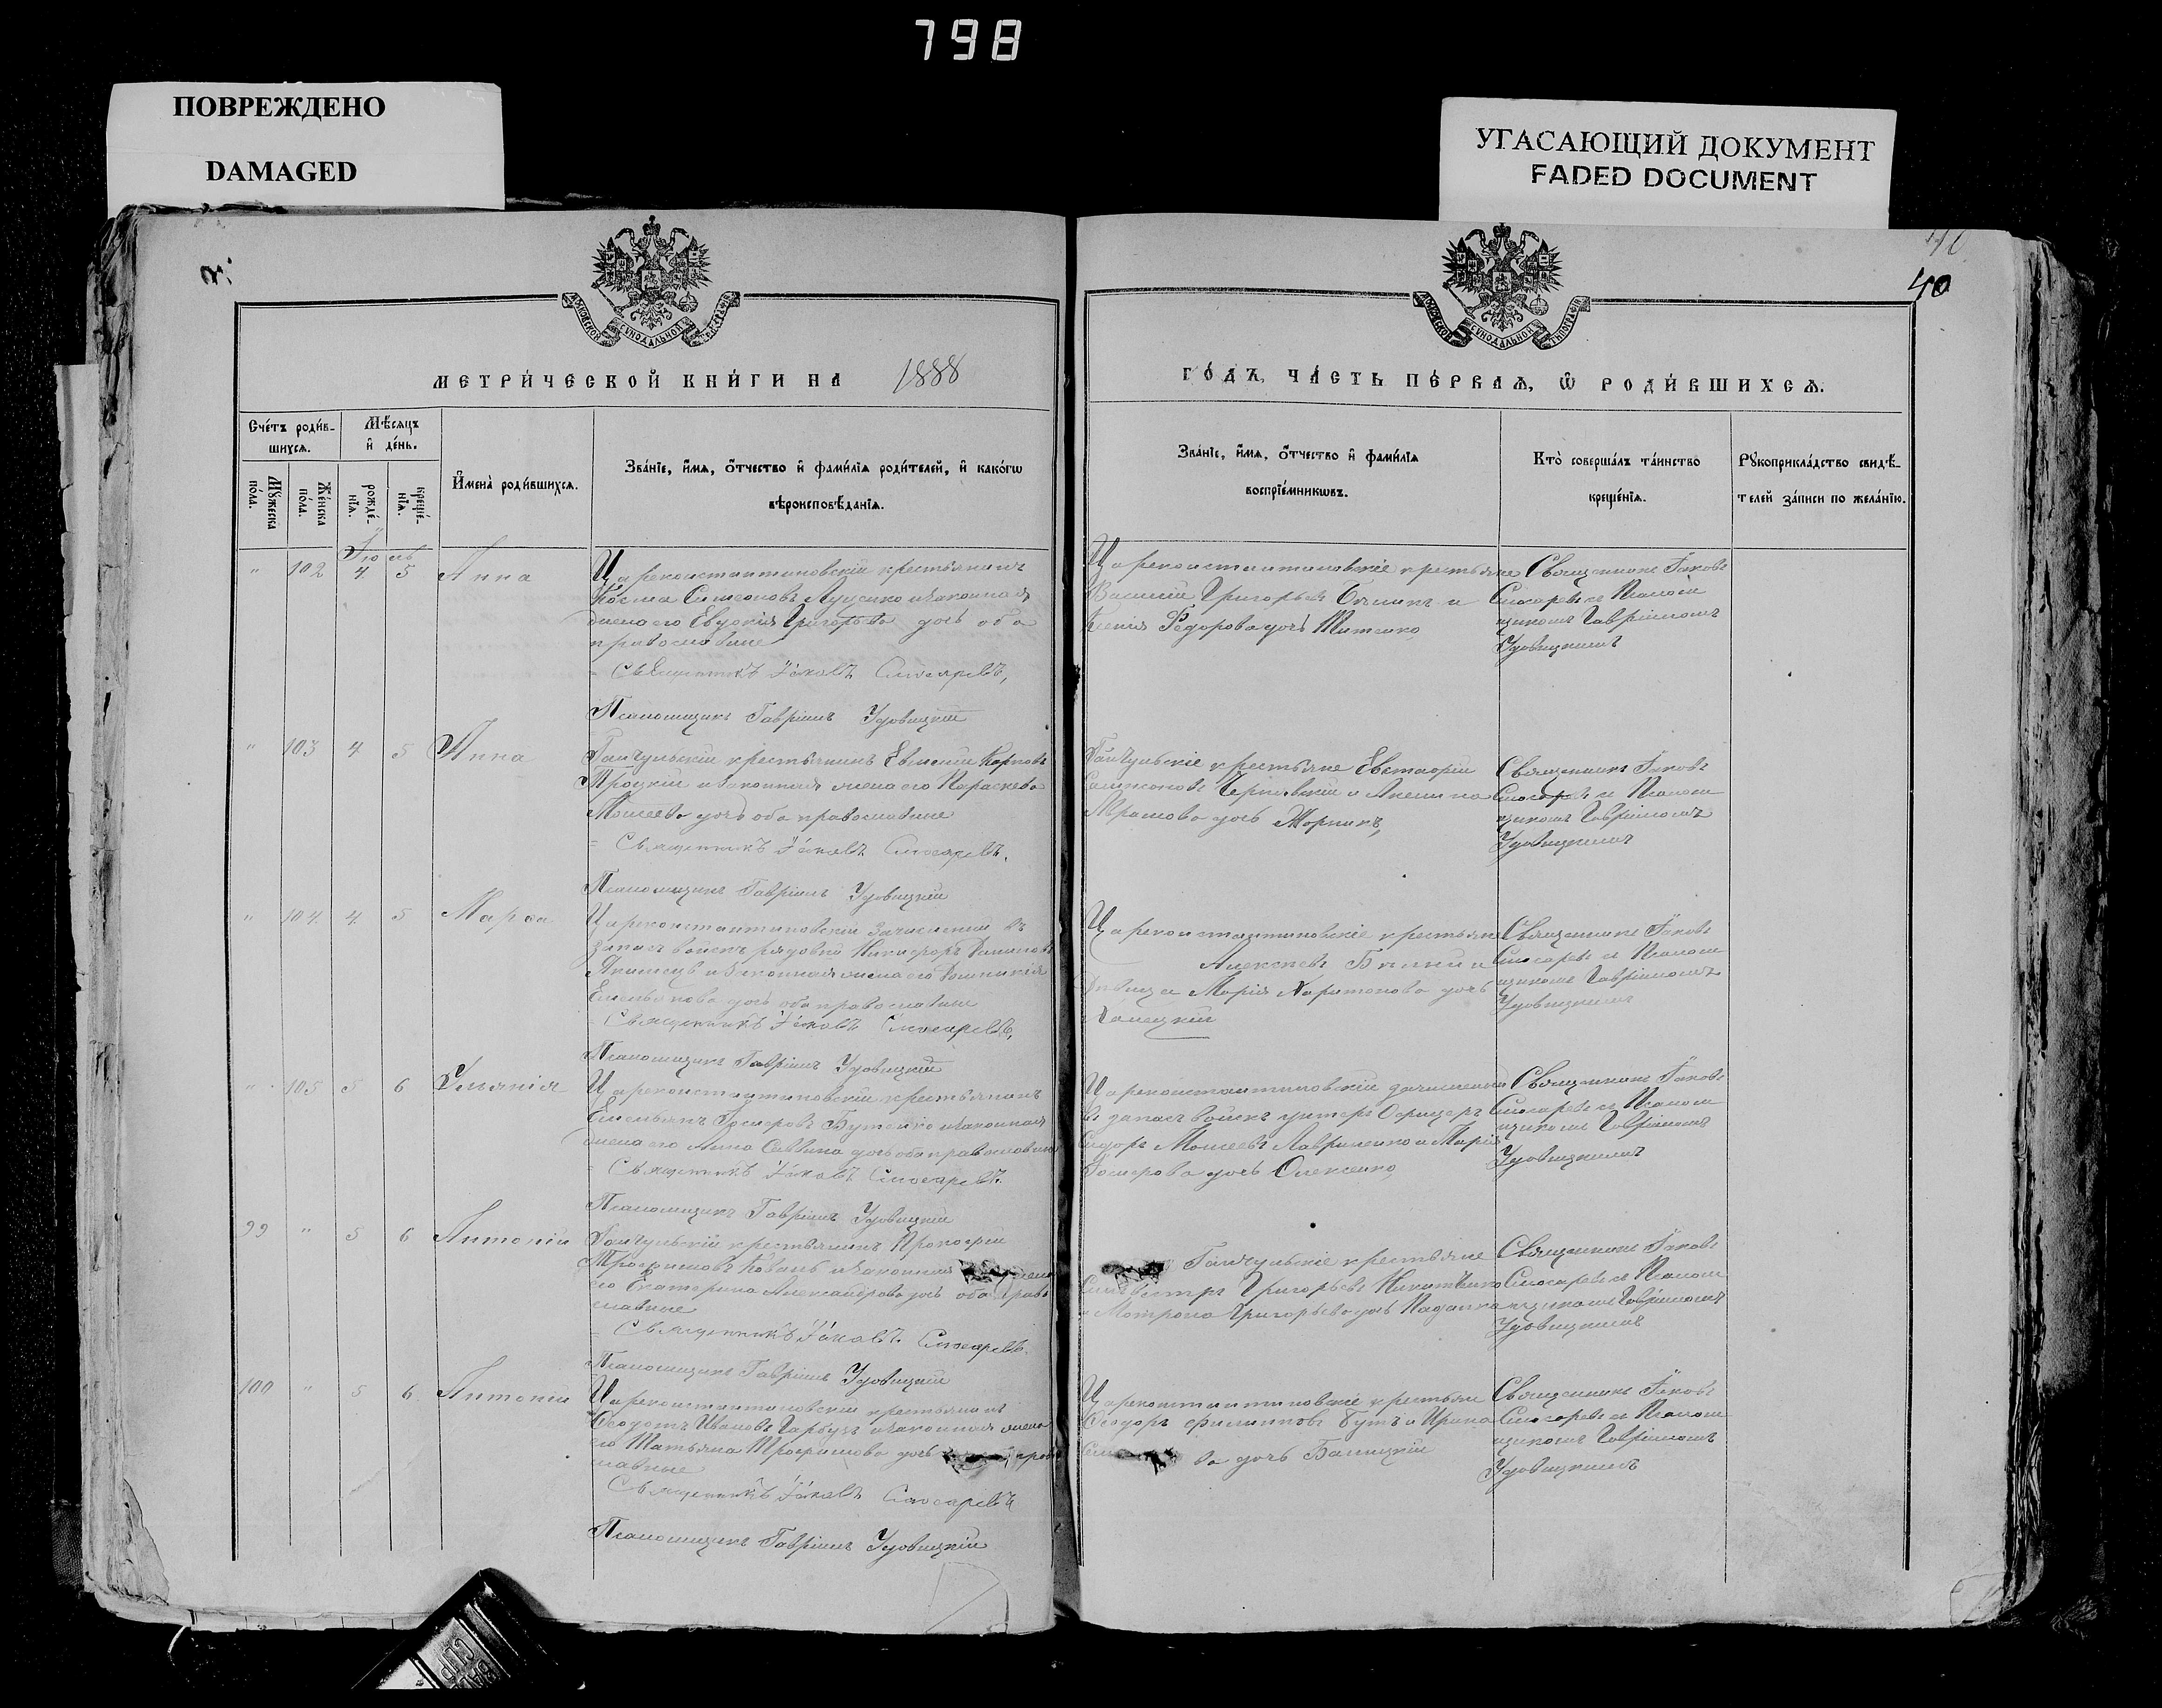 798
ПОВРЕЖДЕНО
DAMAGED
УГАСАЮЩИЙ ДОКУМЕНТ
FADED DOCUMENT
40
МЕТРИ́ЧЕСКОЙ КНИ́ГИ НА 1888
ГО́ДЪ, ЧА́СТЬ ПЕ́РВАѦ, Ѡ РОДИ́ВШИХСѦ.
Сче́тъ роди́в-
шихсѧ.
Мѣ́сѧцъ
и де́нь.
Мꙋ́жеска
по́ла.
Же́нска
по́ла.
рожде́-
нїѧ.
креще́-
нїѧ.
Имена̀ роди́вшихсѧ.
Зва́нїе, и́мѧ, о́тчество и фами́лїѧ роди́телей, и како́гѡ
вѣроисповѣ́данїѧ.
Зва́нїе, и́мѧ, о́тчество и фами́лїѧ
воспрїе́мникѡвъ.
Кто̀ соверша́лъ та́инство
креще́нїѧ.
Рꙋкоприкла́дство свидѣ́-
телей за́писи по жела́нїю.
Іюль
" 102 4 5 Анна
Цареконстантиновскій крестьянинъ
Косма Симеоновъ Луценко и законная
жена его Евдокія Григорьева дочь оба
православные
Священникъ Іаковъ Слюсаревъ,
Псаломщикъ Гавріилъ Удовицкій
Цареконстантиновскіе крестьяне
Василій Григорьевъ и
Ксенія Федорова дочь Титенко,
Священникъ Іаковъ
Слюсаревъ съ Псалом
щикомъ Гавріиломъ
Удовицкимъ
" 103 4 5 Анна
Гайчульскій крестьянинъ Евменій Карповъ
Троцкій и законная жена его Параскева
Моисеева дочь оба православные
Священникъ Іаковъ Слюсаревъ.
Псаломщикъ Гавріилъ Удовицкій
Гайчульскіе крестьяне Евстафій
Чернявскій и Акилина
Абрамова дочь
Священникъ Іаковъ
Слюсаревъ съ Псалом
щикомъ Гавріиломъ
Удовицкимъ
" 104 4 5 Марѳа
Цареконстантиновскій зачисленный въ
запасъ войскъ рядовой Никифоръ Даниловъ
и законная жена его Домникія
Емельянова дочь оба православные
Священникъ Іаковъ Слюсаревъ,
Псаломщикъ Гавріилъ Удовицкій
Цареконстантиновскіе крестьяне
Алексѣевъ и
Дѣвица Марія Харитонова дочь
Священникъ Іаковъ
Слюсаревъ съ Псалом
щикомъ Гавріиломъ
Удовицкимъ
" 105 5 6 Уліянія
Цареконстантиновскій крестьянинъ
Емельянъ Бутейко и законная
жена его Анна Саввина дочь оба православные
Священникъ Іаковъ Слюсаревъ.
Псаломщикъ Гавріилъ Удовицкій
Цареконстантиновскій зачисленный
въ запасъ войскъ унтеръ Офицеръ
Сидоръ Моисеевъ Лавриненко и Марія
дочь Олексенко,
Священникъ Іаковъ
Слюсаревъ съ Псалом
щикомъ Гавріиломъ
Удовицкимъ
99 " 5 6 Антоній
Гайчульскій крестьянинъ Прокофій
Трофимовъ и законная жена
его Екатерина Александрова дочь оба право
славные
Священникъ Іаковъ Слюсаревъ.
Псаломщикъ Гавріилъ Удовицкій
Гайчульскіе крестьяне
Сильвестръ Григорьевъ Никитенко
и Матрона Григорьева дочь
Священникъ Іаковъ
Слюсаревъ съ Псалом
щикомъ Гавріиломъ
Удовицкимъ
100 " 5 6 Антоній
Цареконстантиновскій крестьянинъ
Ѳеодотъ Ивановъ Гарбузъ и законная жена
его Татьяна Трофимова дочь право
славные
Священникъ Іаковъ Слюсаревъ
Псаломщикъ Гавріилъ Удовицкій
Цареконстантиновскіе крестьяне
Ѳеодоръ Филипповъ Бутъ и Ирина
ва дочь Балицкій
Священникъ Іаковъ
Слюсаревъ съ Псалом
щикомъ Гавріиломъ
Удовицкимъ